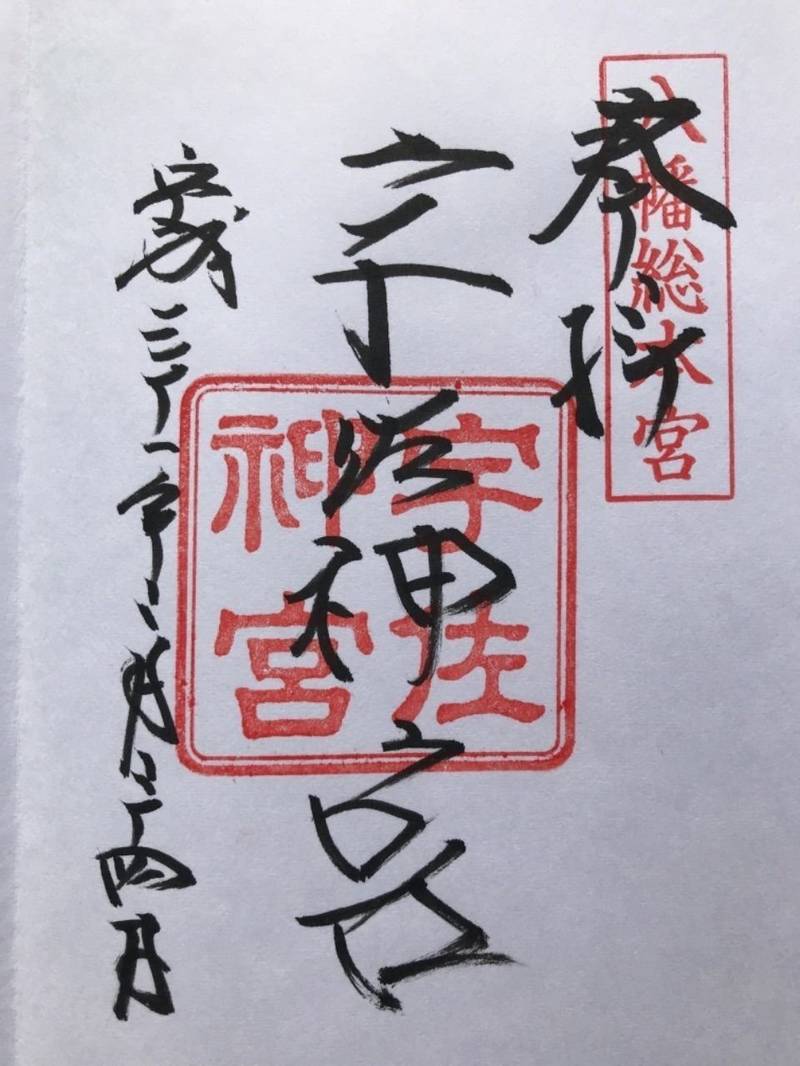 八幡総本宮
奉拝
宇佐神宮
宇佐神宮
平成三十一年二月二十四日